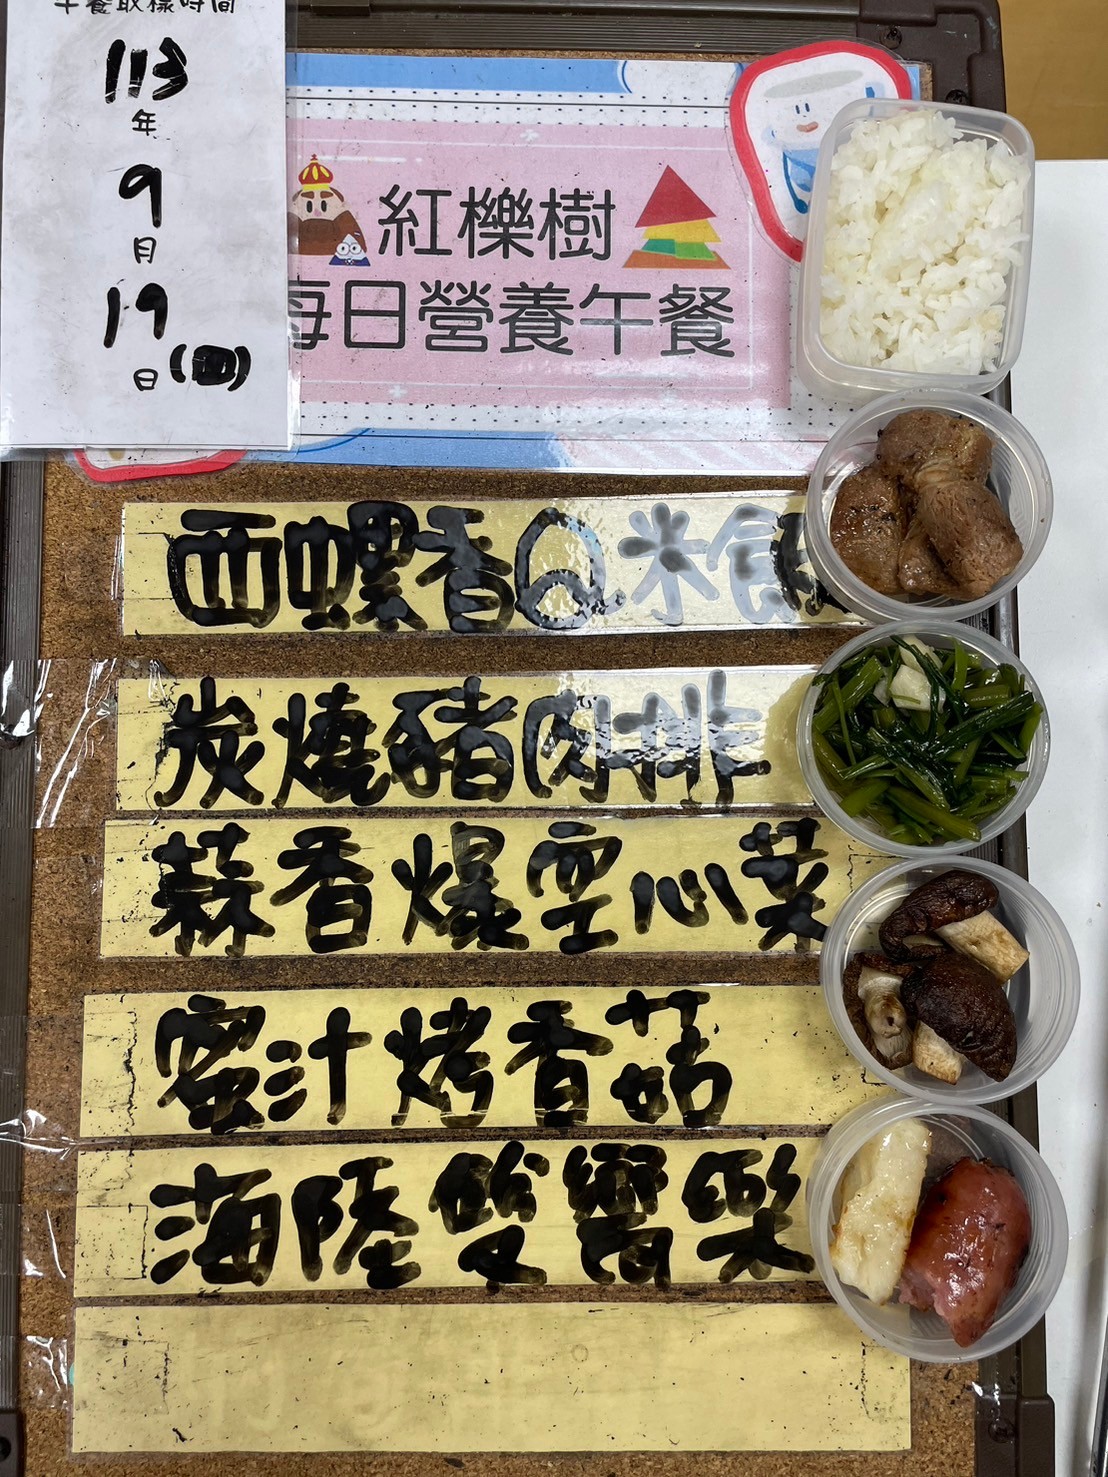 午餐取樣時間
113
年
9
月
19
日(四)
紅櫟樹
每日營養午餐
西螺香Q米飯
炭燒豬肉排
蒜香爆空心菜
蜜汁烤香菇
海陸雙響樂